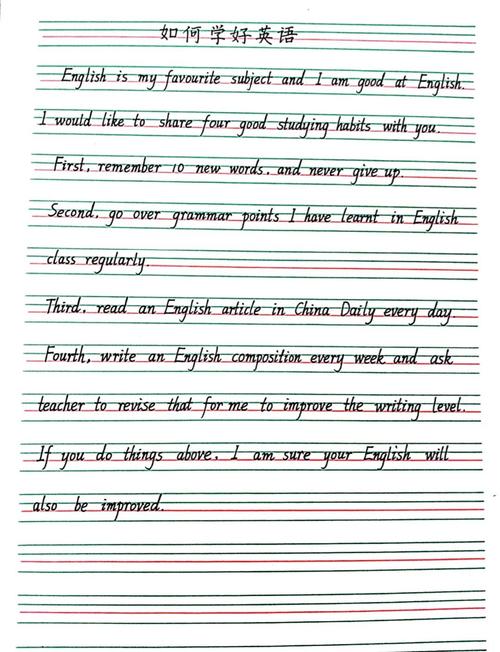 如何学好英语
English is my favourite subject and I am good at English.
I would like to share four good studying habits with you.
First, remember 10 new words, and never give up.
Second, go over grammar points I have learnt in English
class regularly.
Third, read an English article in China Daily every day.
Fourth, write an English composition every week and ask
teacher to revise that for me to improve the writing level.
If you do things above, I am sure your English will
also be improved.